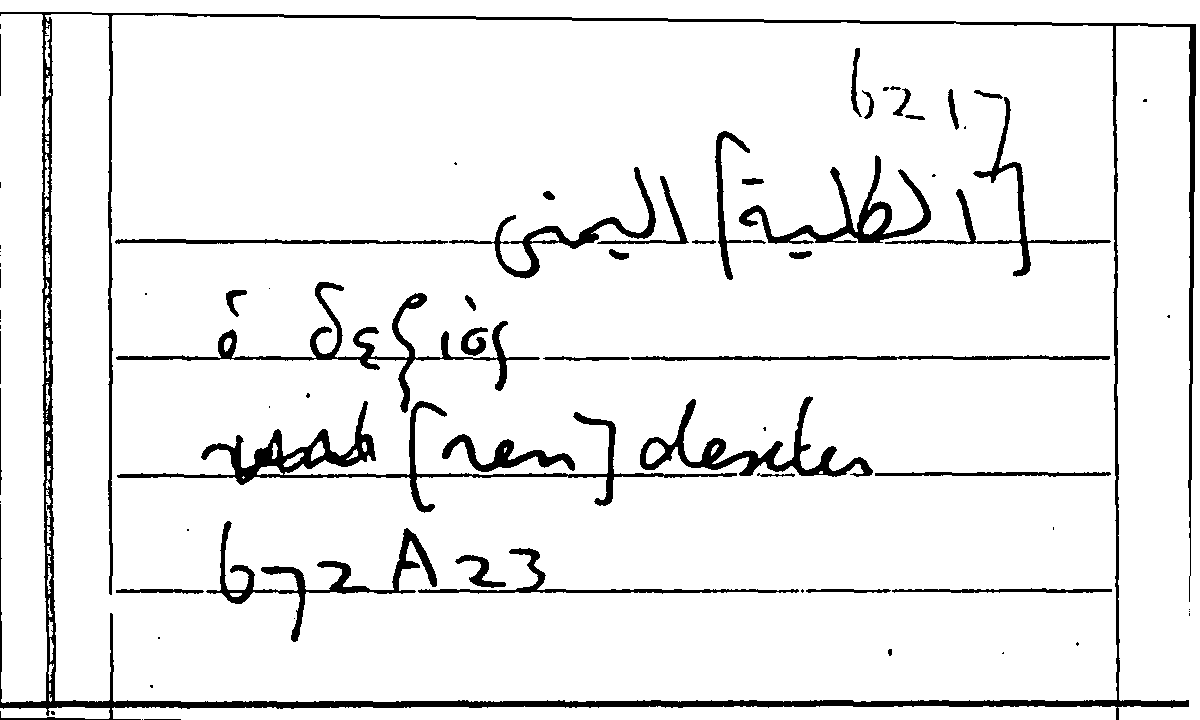 6217
[الكلية] اليمنى
ὁ δεξιός
[ren] dexter
672 A 23